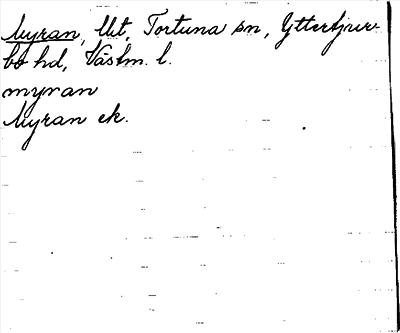 Myran, Ut, Tortuna sn, Yttertjur-
bo hd, Västm. l.
myran
Myran ek.